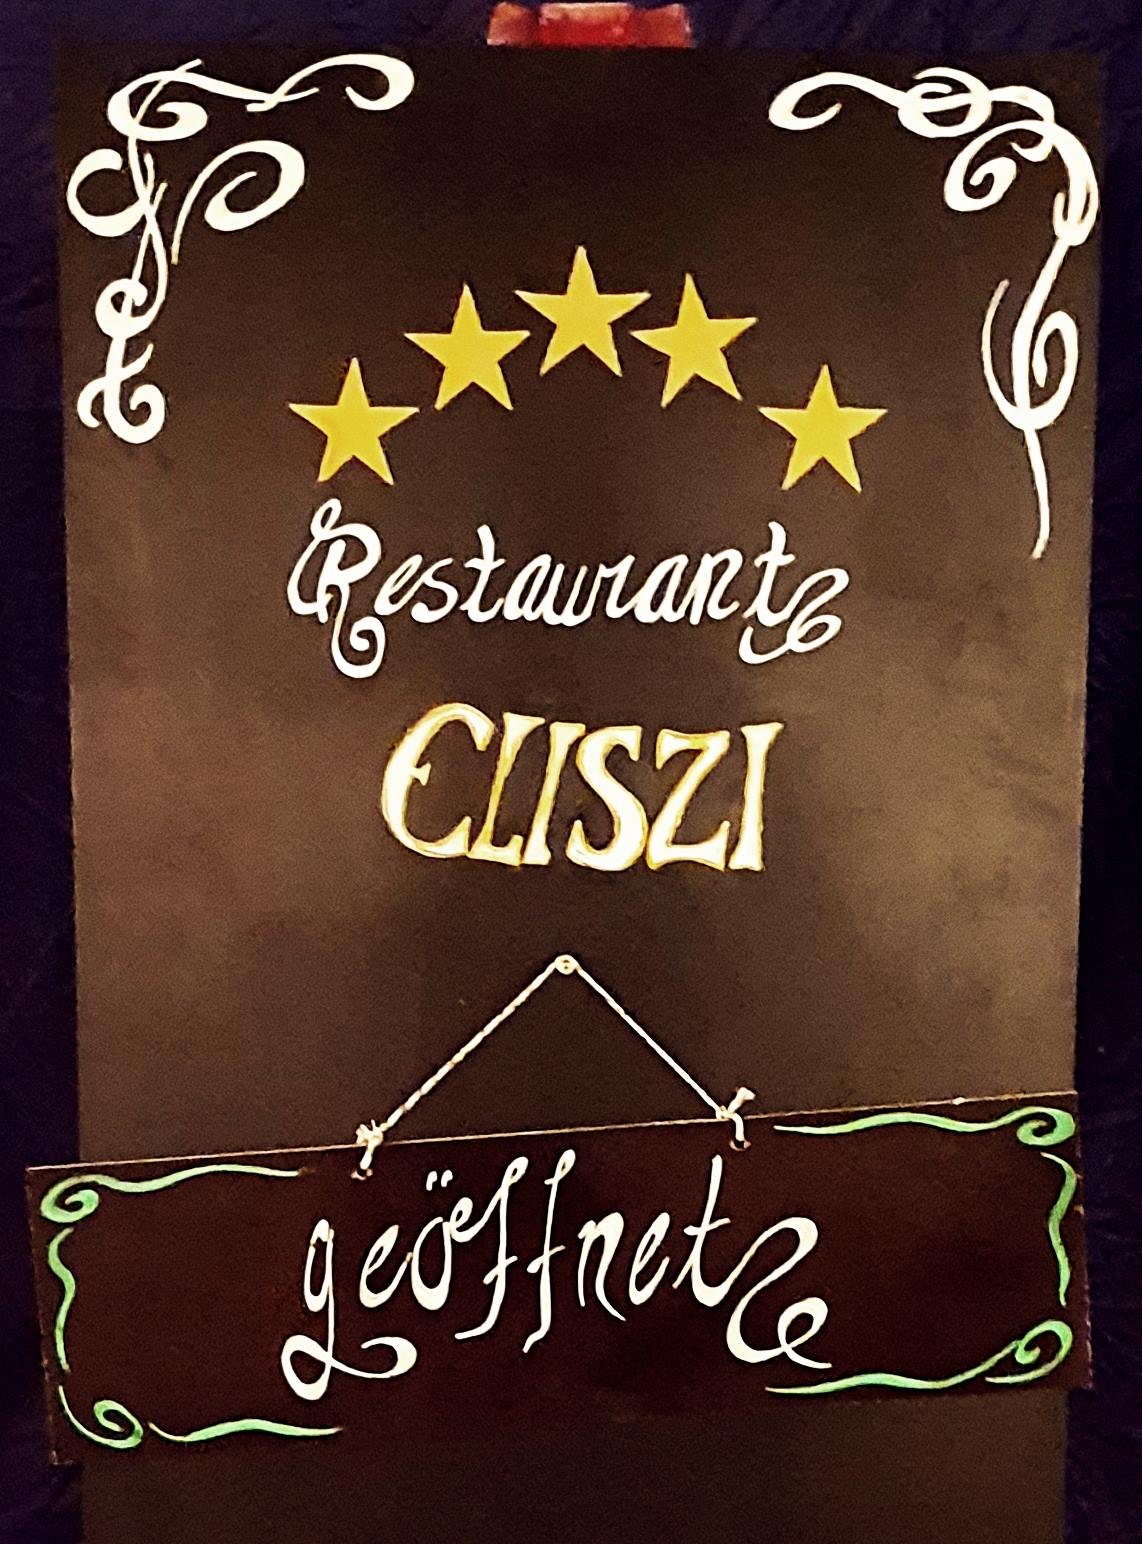 Restaurant
ELISZI
geöffnet